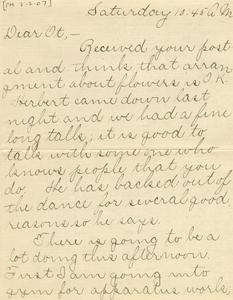 [PM 2-2-07]
Saturday 10:45 A.M.
Dear Ot,—
Received your post-
al and thinks that arran
gement about flowers is O.K.
Herbert came down last
night and we had a fine
long talk; it is good to
talk with some one who
knows people that you
do. He has backed out of
the dance for several good
reasons so he says.
There is going to be a
lot doing this afternoon.
First I am going into
gym for apparatus work,